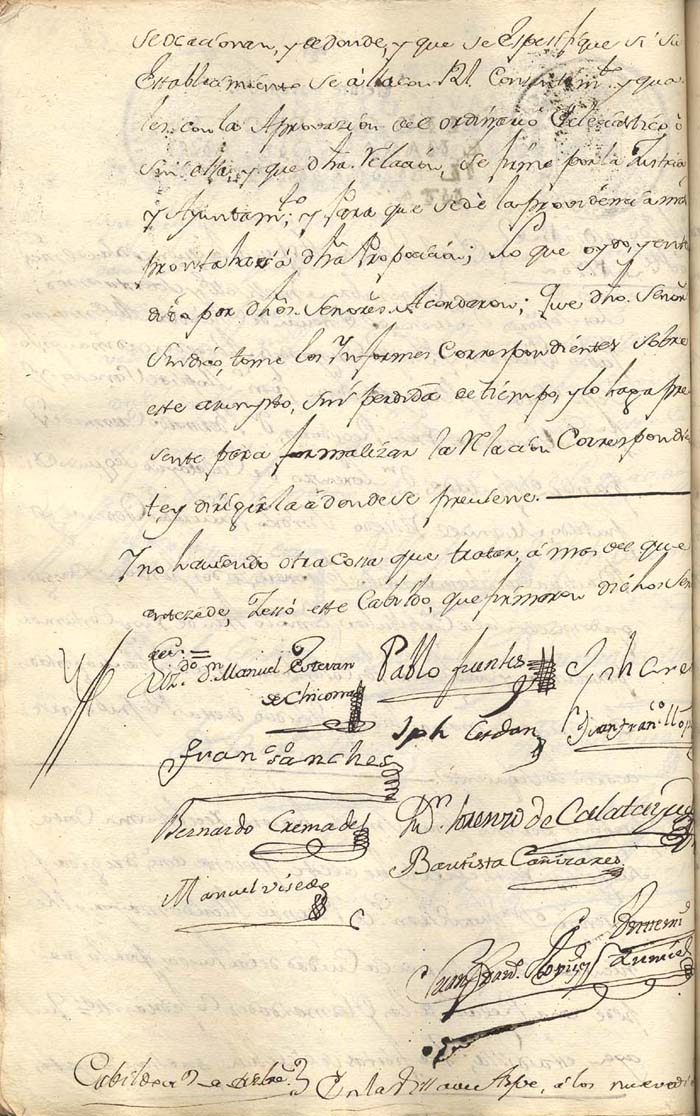 se ocacionan, y de donde, y que se Espesifique si su
Establecimiento se á hecho con Rl. Consentimto. y qua
les con la Aprovazion del ordinario Eclesiastico ò
sin ella, y que dha. Relacion, se firme por la Justicia
y Ayuntamto.; y para que se dè la providencia mas
pronta hazia dha Proposicion; lo que oydo, y enten
dido por dhos. Senores. Acordaron; Que dho. Señor
Sindico, tome los Informes Correspondientes sobre
este asumpto, sin perdida de tiempo, y lo haga pre
sente para formalizar la Relacion Correspondien
te y dirigirla á donde se previene.
Y no haviendo otra cossa que tratar, á mas del que
antezede, Zessò este Cabildo, que firmaron dichos Señ
Lizdo. Dn. Manuel Estevan
de Chicoma
Pablo fuentes
Jph
Jph Cerdan
Juan Franco. Llop
Franco. Sanches
Bernardo Cremades
Dn. Lorenzo de Calatayud
Bautista Cañizares
Manuel Visedo
Ante mi
Cabildo
En la Villa de Aspe, á los nueve di